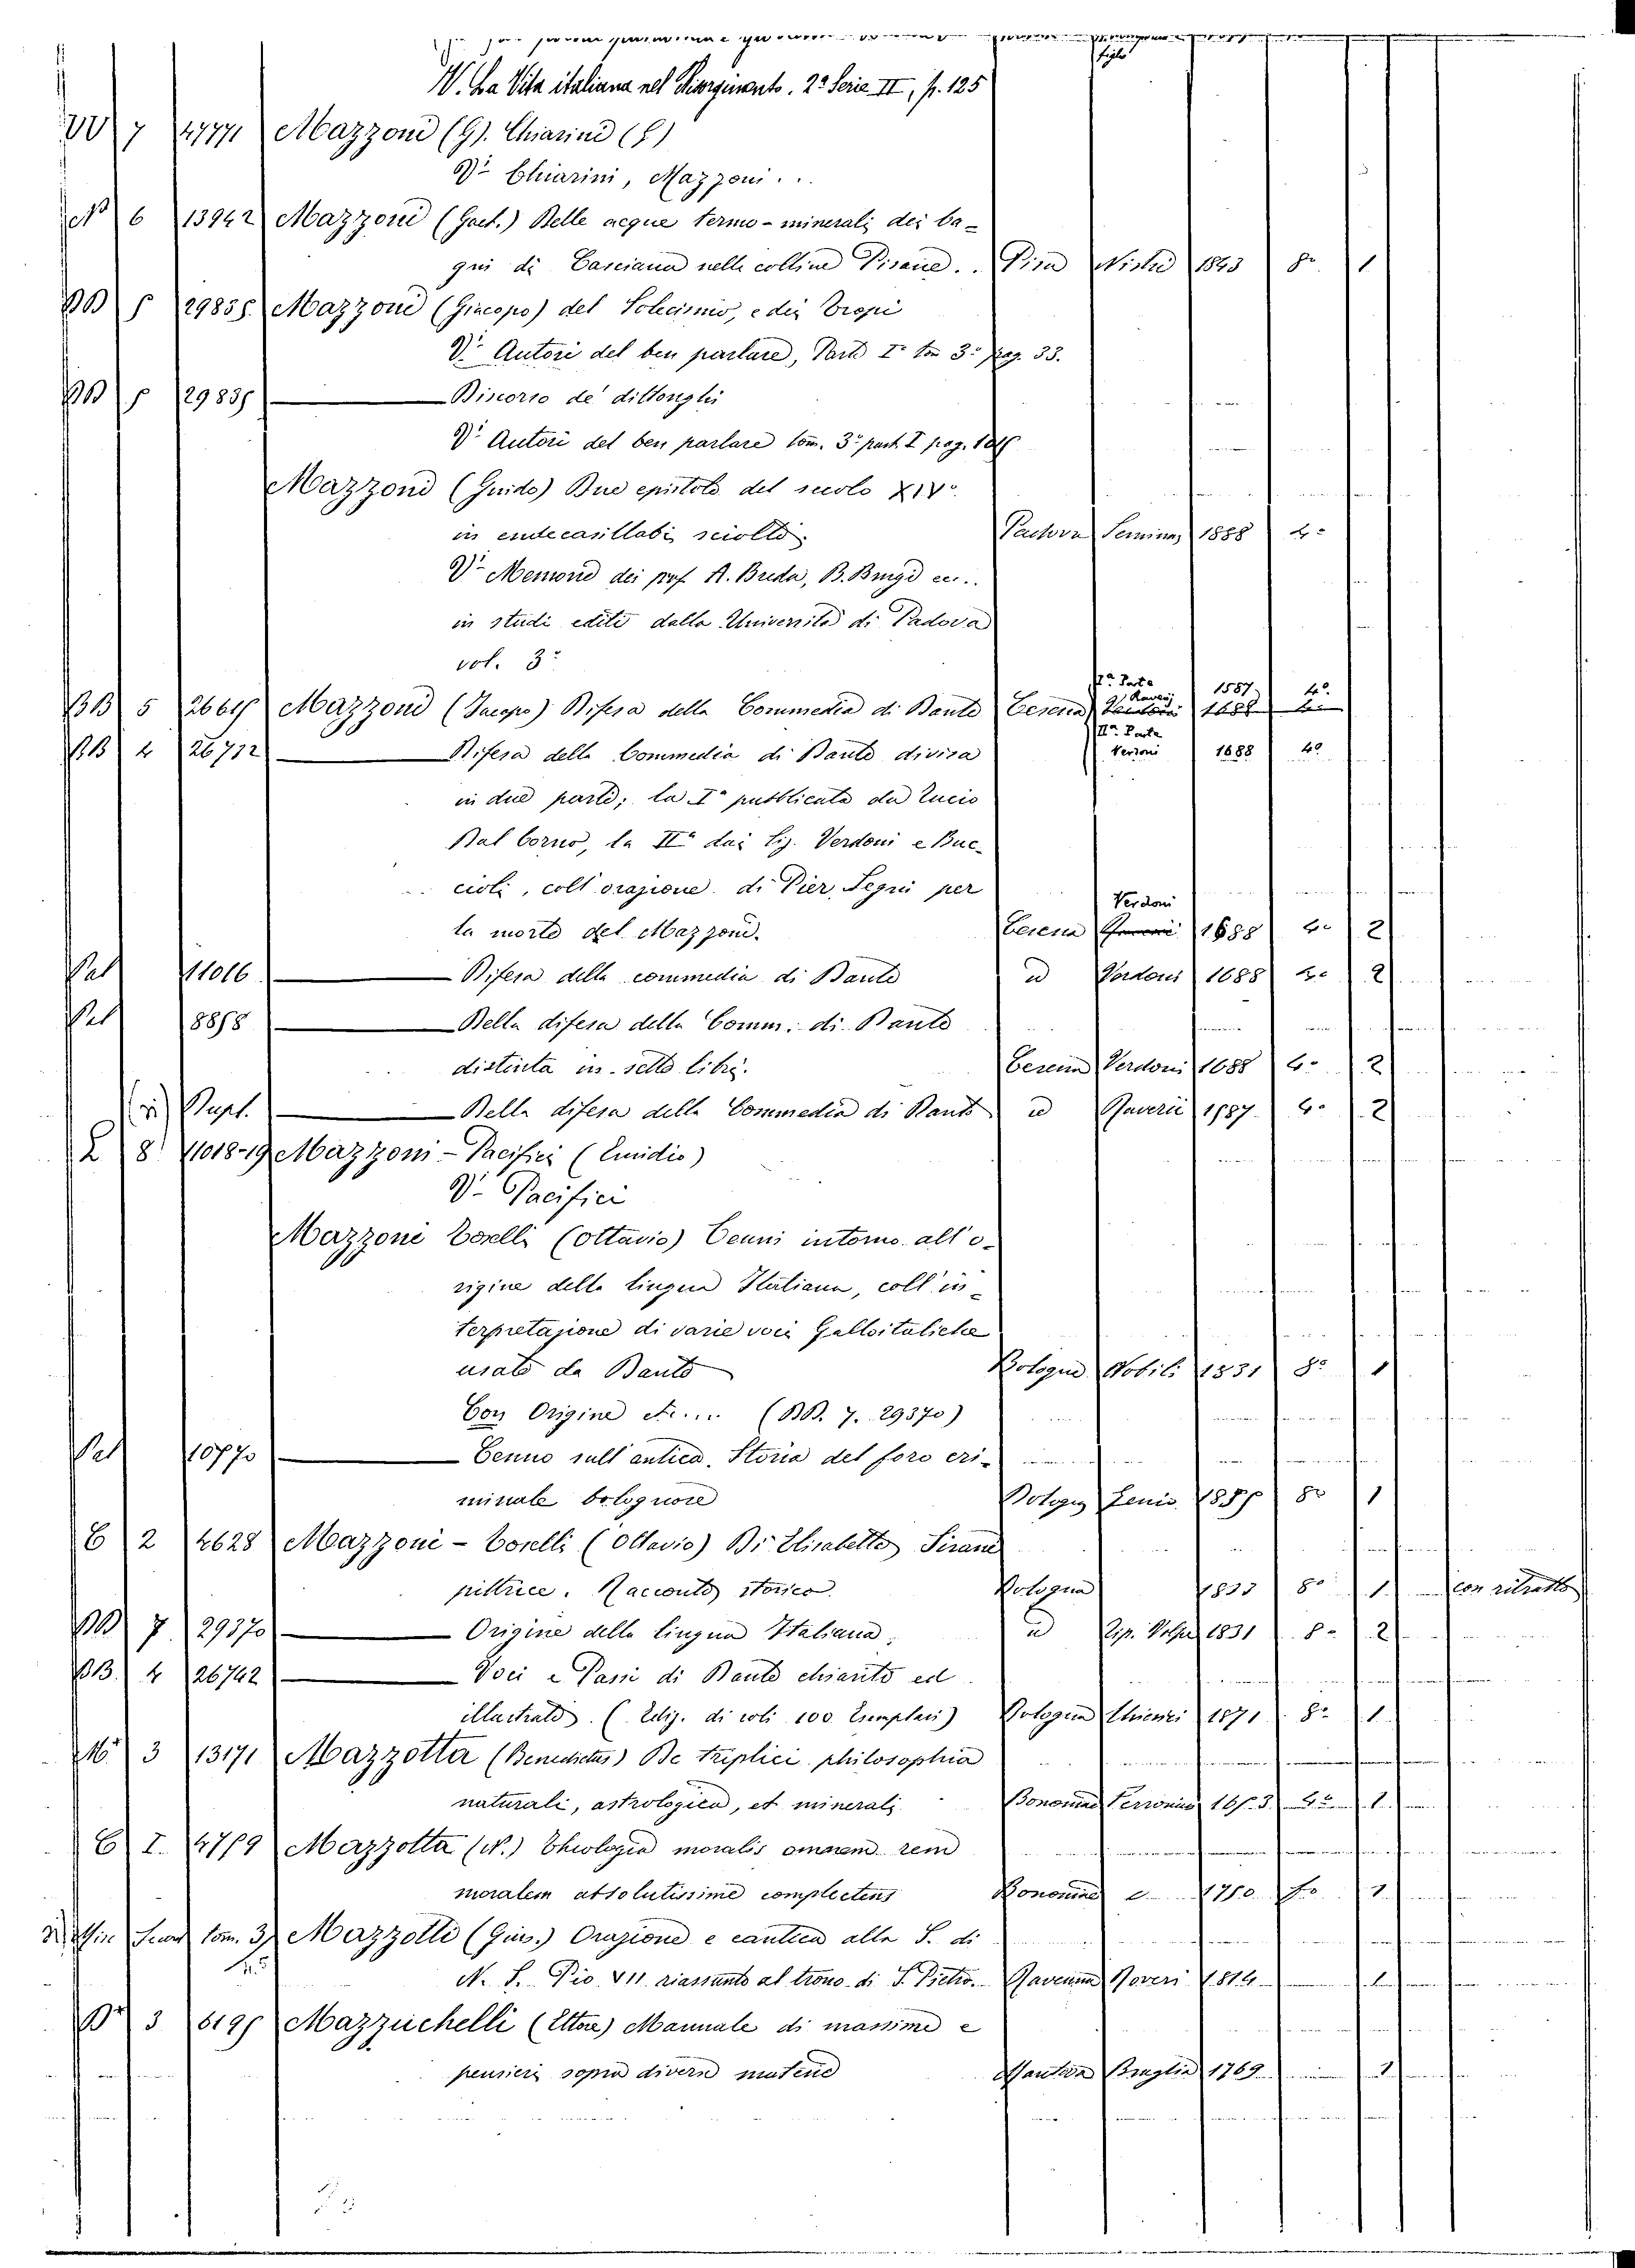 figlo
V. La Vita italiana nel Risorgimento. 2ª Serie II, p. 125
VV 7 4771 Mazzoni (G). Chiarini (G)
Vⁱ Chiarini, Mazzoni...
6 13942 Mazzoni (Gaet.) Delle acque termo-minerali dei ba-
gni di Casciana nelle colline Pisane. . Pisa Nistri 1843 8º 1
BB 5 29835 Mazzoni (Giacopo) del Solecismo, e dei Tropi
Vⁱ Autori del ben parlare, Parte Iª tom 3º pag. 33.
BB 5 29835 Discorso de' dittonghi
Vⁱ Autori del ben parlare tom. 3º part. I pag.
Mazzoni (Guido) Due epistole del secolo XIVº
in endecasillabi sciolti. Padova Semina 1888 4º
Vⁱ Memorie dei prof. A. Breda, B. Brugi ec..
in studi editi dalla Università di Padova
vol. 3º
Iª Parte Raverj 1587 4º
BB 5 Mazzoni (Jacopo) Difesa della Commedia di Dante Cesena 1688 4º
IIª Parte
BB 4 26712 Difesa della Commedia di Dante divisa Verdoni 1688 4º
in due parti; la Iª pubblicata da Lucio
Dal Corno, la IIª dai Sig. Verdoni e Buc-
cioli, coll'orazione di Pier Segni per
Verdoni
la morte del Mazzoni. Cesena 1688 4º 2
Pal 11016 Difesa della commedia di Dante id Verdoni 1688 4º 2
Pal 8858 Della difesa della Comm. di Dante
distinta in sette libri. Cesena Verdoni 1688 4º 2
Dupl. Della difesa della Commedia di Dante id Raverii 1587 4º 2
L 8 11018-19 Mazzoni-Pacifici (Emidio)
Vⁱ Pacifici
Mazzoni Toselli (Ottavio) Cenni intorno all'o-
rigine della lingua Italiana, coll'in-
terpretazione di varie voci Galloitaliche
usate da Dante Bologna Nobili 1831 8º 1
Con Origine &.... (BB. 7. 29370)
Pal 10770 Cenno sull'antica Storia del foro cri-
minale bolognese Bologna 8º 1
6 2 4628 Mazzoni-Toselli (Ottavio) Di Elisabetta Sirani
pittrice. Racconto storico. Bologna 1833 8º 1 con ritratto
BB 7 29370 Origine della lingua Italiana, id Tip. Volpe 1831 8º 2
BB. 4 26742 Voci e Passi di Dante chiarito ed
illustrato. (Ediz. di soli 100 Esemplari) Bologna 1871 8º 1
3 13171 Mazzotta (Benedictus) De triplici philosophia
naturali, astrologica, et minerali Bononiae Ferronius 1653 4º 1
6 I. 4759 Mazzotta (N.) Theologia moralis omnem rem
moralem absolutissime complectens Bononiae 1750 fo 1
tom. 3 Mazzotti (Gius.) Orazione e cantica alla S. di
N. S. Pio VII. riassunto al trono di S. Pietro. Ravenna Roveri 1814 1
3 6195 Mazzuchelli (Ettore) Manuale di massime e
pensieri sopra diverse materie Mantova Braglia 1769 1